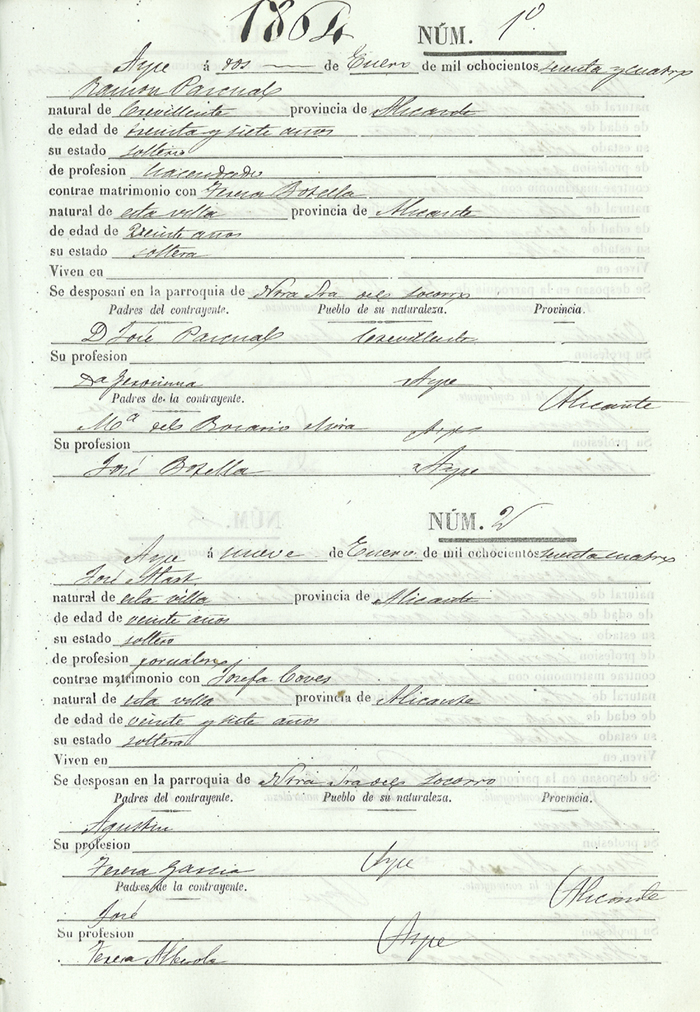 1864 NÚM. 1º
Aspe á dos de Enero de mil ochocientos sesenta y cuatro
Ramon Pascual
natural de Crevillente provincia de Alicante
de edad de treinta y siete años
su estado soltero
de profesion hacendado
contrae matrimonio con Teresa Botella
natural de esta villa provincia de Alicante
de edad de veinte años
su estado soltera
Viven en
Se desposan en la parroquia de Ntra Sra del Socorro
Padres del contrayente. Pueblo de su naturaleza. Provincia.
D José Pascual Crevillente
Su profesion
Da Geronima Aspe
Padres de la contrayente. Alicante
Mª del Rosario Mira Aspe
Su profesion
José Botella Aspe
NÚM. 2
Aspe á nueve de Enero de mil ochocientos sesenta cuatro
José
natural de esta villa provincia de Alicante
de edad de veinte años
su estado soltero
de profesion jornalero
contrae matrimonio con Josefa Coves
natural de esta villa provincia de Alicante
de edad de veinte y siete años
su estado soltera
Viven en
Se desposan en la parroquia de Ntra Sra del Socorro
Padres del contrayente. Pueblo de su naturaleza. Provincia.
Agustin
Su profesion
Teresa Garcia Aspe
Padres de la contrayente. Alicante
José
Su profesion Aspe
Teresa Alberola